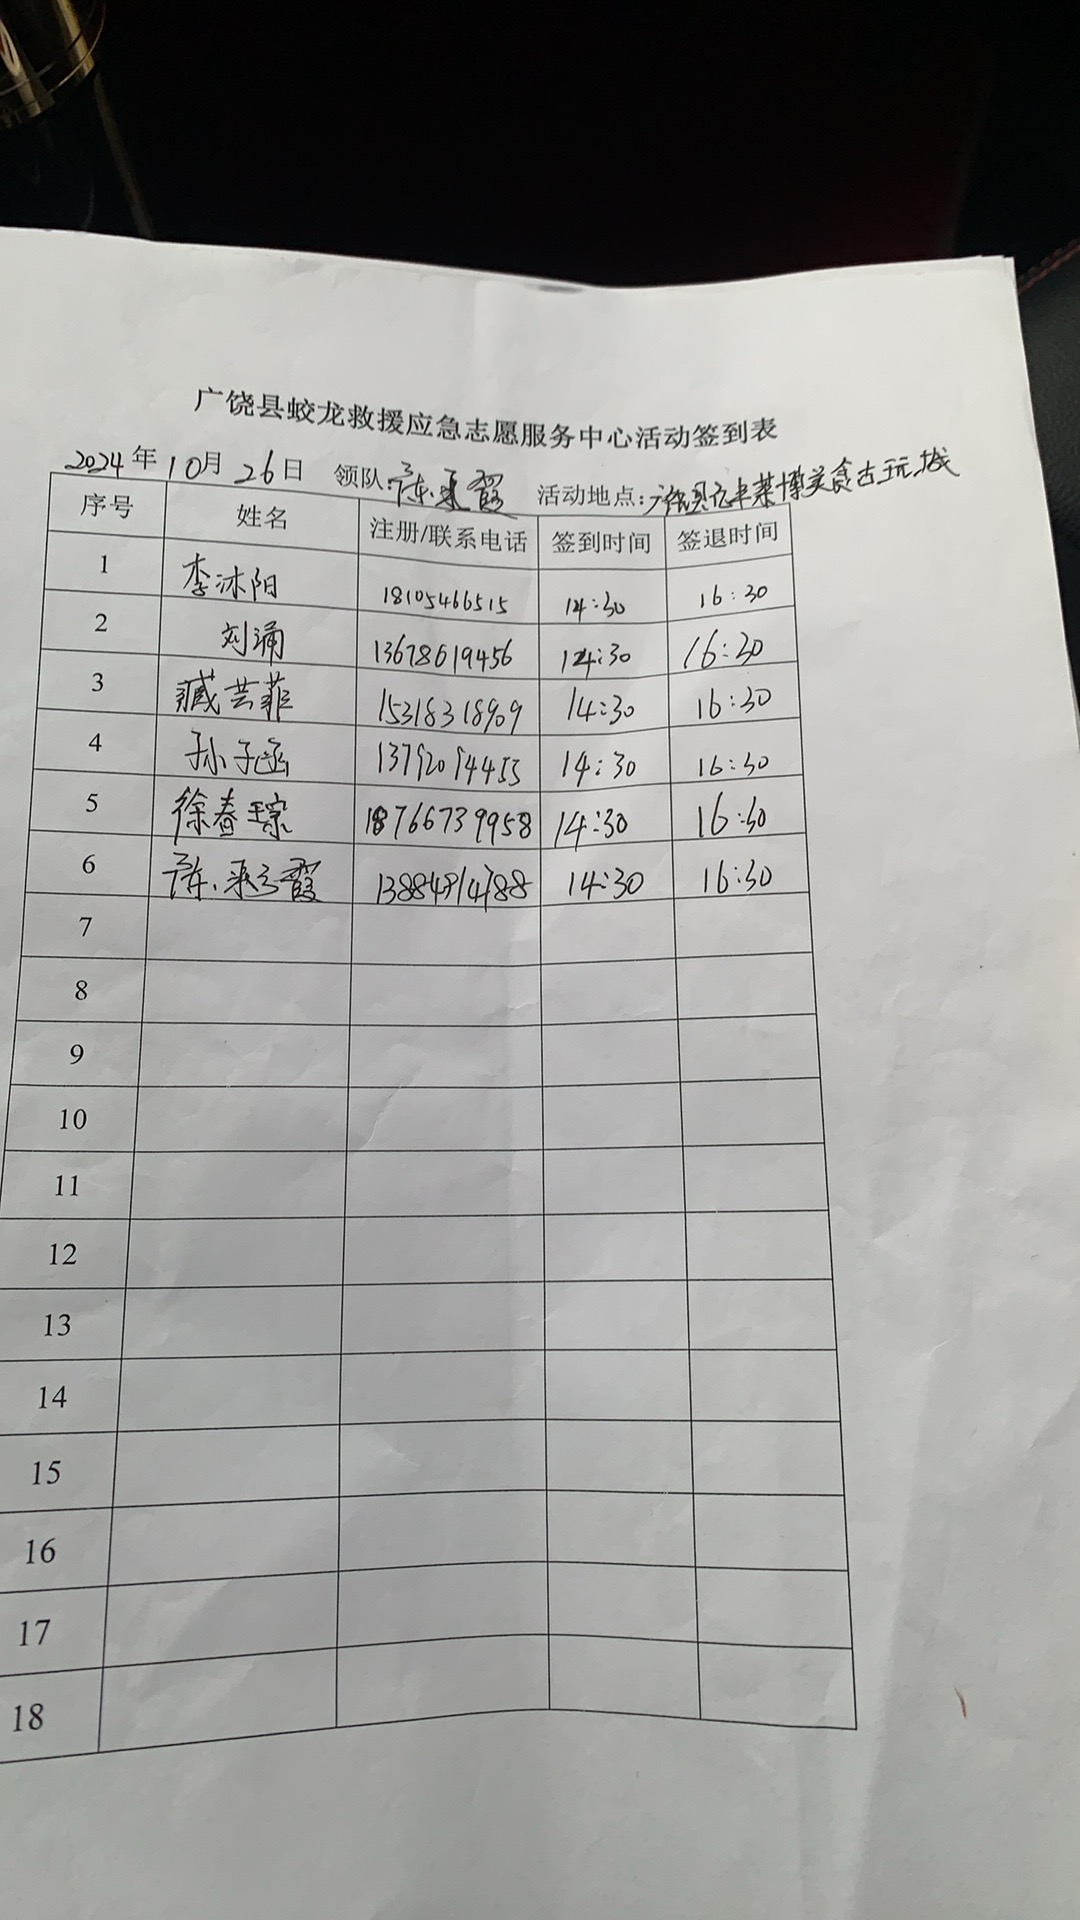 广饶县蛟龙救援应急志愿服务中心活动签到表
2024年10月26日 领队:陈来霞 活动地点:广饶县亿丰莱博美食古玩城
序号 姓名 注册/联系电话 签到时间 签退时间
1 李沐阳 18105466515 14:30 16:30
2 刘涌 13678619456 14:30 16:30
3 臧芸菲 15318318909 14:30 16:30
4 孙子涵 13792094455 14:30 16:30
5 徐春琮 18766739958 14:30 16:30
6 陈来霞 13884914788 14:30 16:30
7
8
9
10
11
12
13
14
15
16
17
18